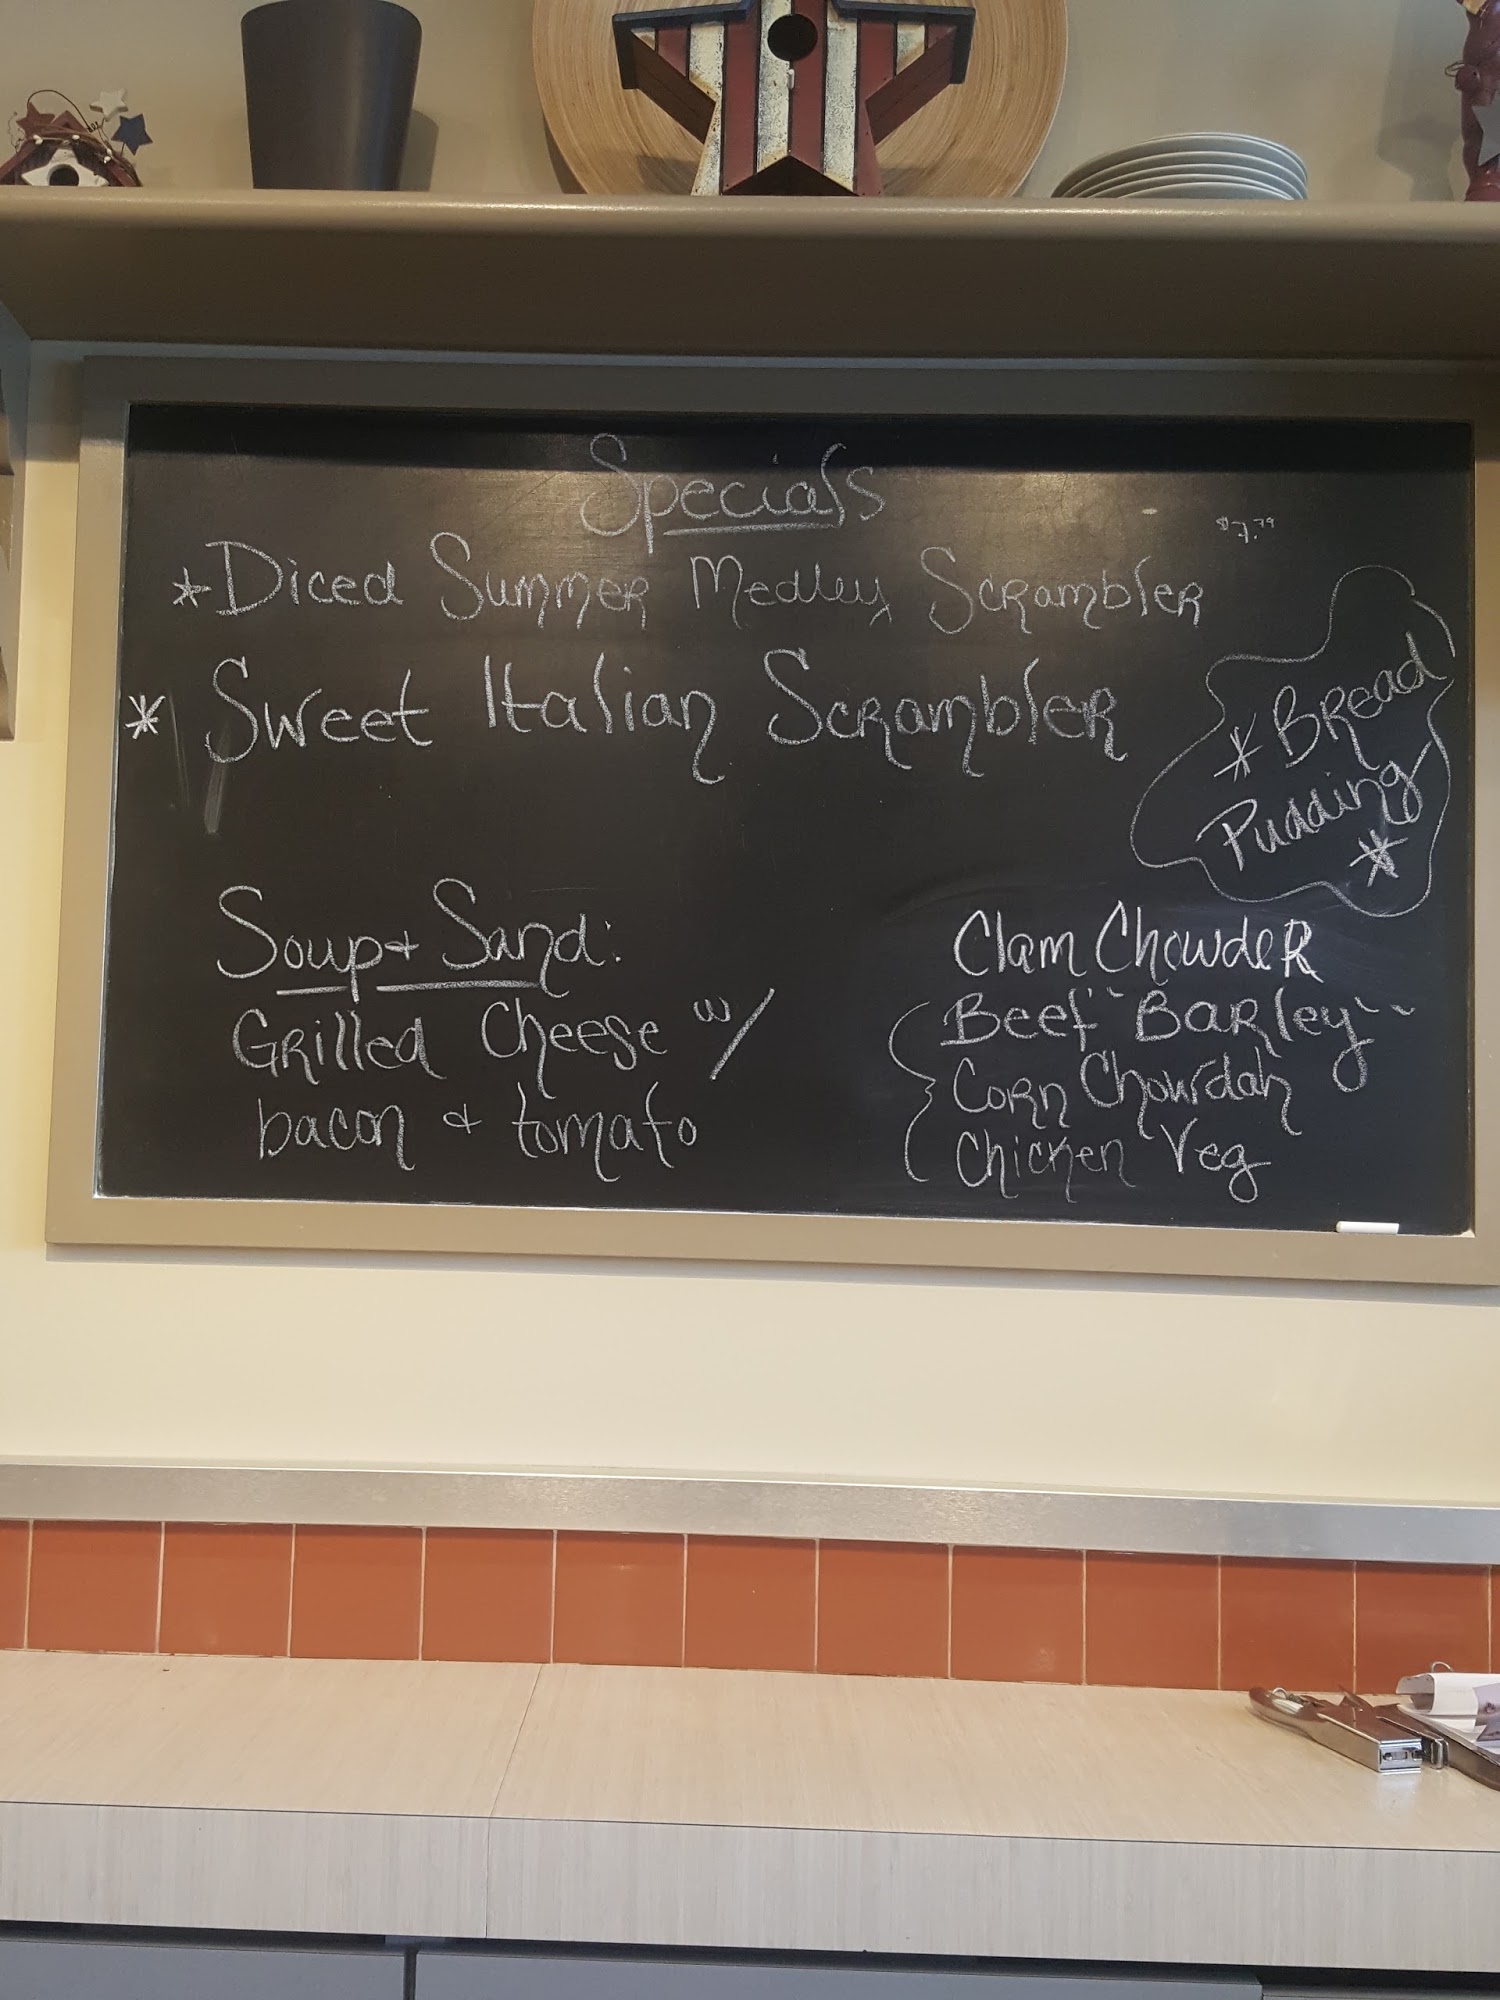 Specials
$7.79
*Diced Summer Medley Scrambler
* Sweet Italian Scrambler
* Bread
Pudding
*
Soup + Sand:
Grilled Cheese w/
bacon & tomato
Clam Chowder
Beef "Barley"
Corn Chowdah
Chicken Veg